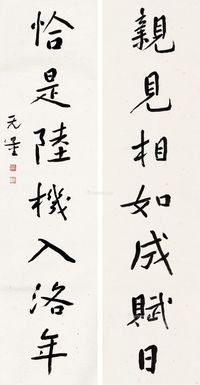 親見相如成賦日
恰是陸機入洛年
天星